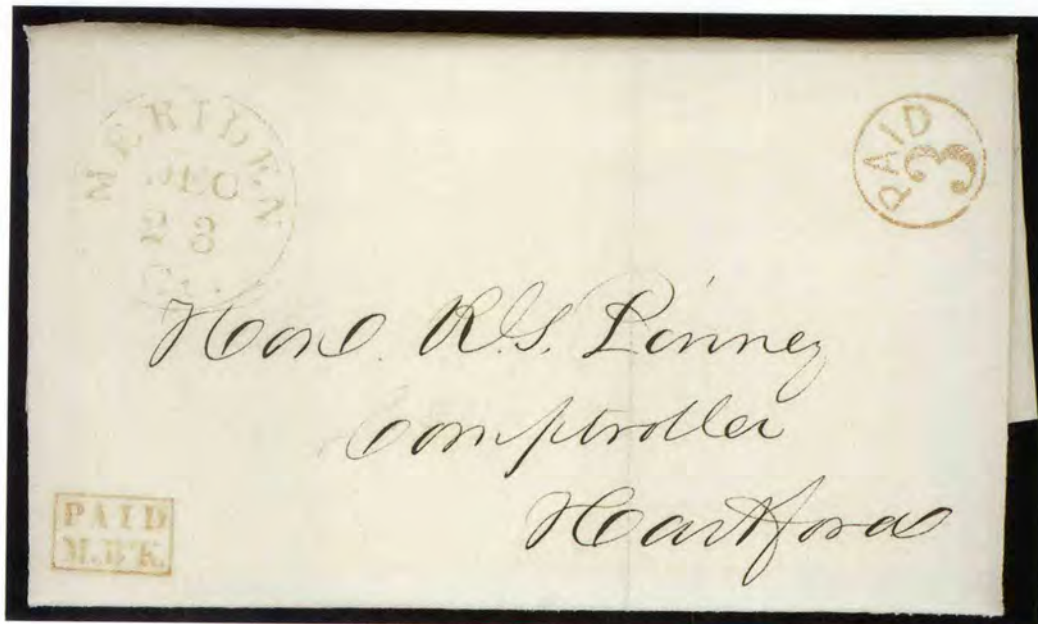 MERIDEN
DEC
23
Ct.
PAID
3
Hon. R.S. Pinney
Comptroller
Hartford
PAID
M.B'K.